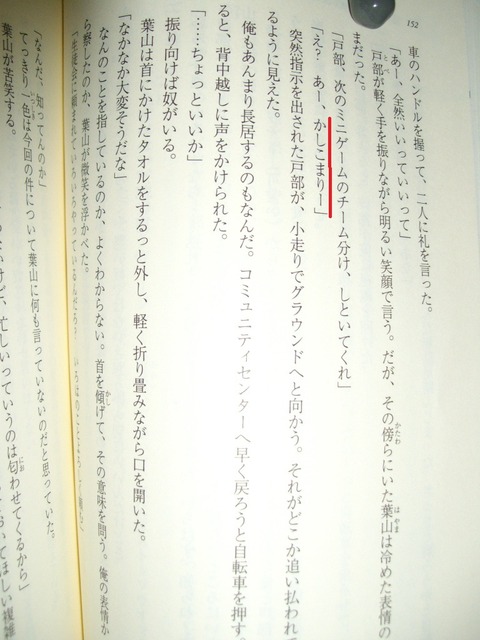 152
車のハンドルを握って、二人に礼を言った。
「あー、全然いいっていいって」
戸部が軽く手を振りながら明るい笑顔で言う。だが、その傍らにいた葉山は冷めた表情の
まだった。
「戸部、次のミニゲームのチーム分け、しといてくれ」
「え? あー、かしこまりー」
突然指示を出された戸部が、小走りでグラウンドへと向かう。それがどこか追い払われて
るように見えた。
俺もあんまり長居するのもなんだ。コミュニティセンターへ早く戻ろうと自転車を押す
ると、背中越しに声をかけられた。
「……ちょっといいか」
振り向けば奴がいる。
葉山は首にかけたタオルをするっと外し、軽く折り畳みながら口を開いた。
「なかなか大変そうだな」
なんのことを指しているのか、よくわからない。首を傾げて、その意味を問う。俺の表情か
ら察したのか、葉山が微笑を浮かべた。
「生徒会に頼まれていろいろやっているんだろ?
「なんだ、知ってんのか」
てっきり一色は今回の件について葉山に何も言っていないのだと思っていた。
葉山が苦笑する。
けど、忙しいっていうのは匂わせてくるから」